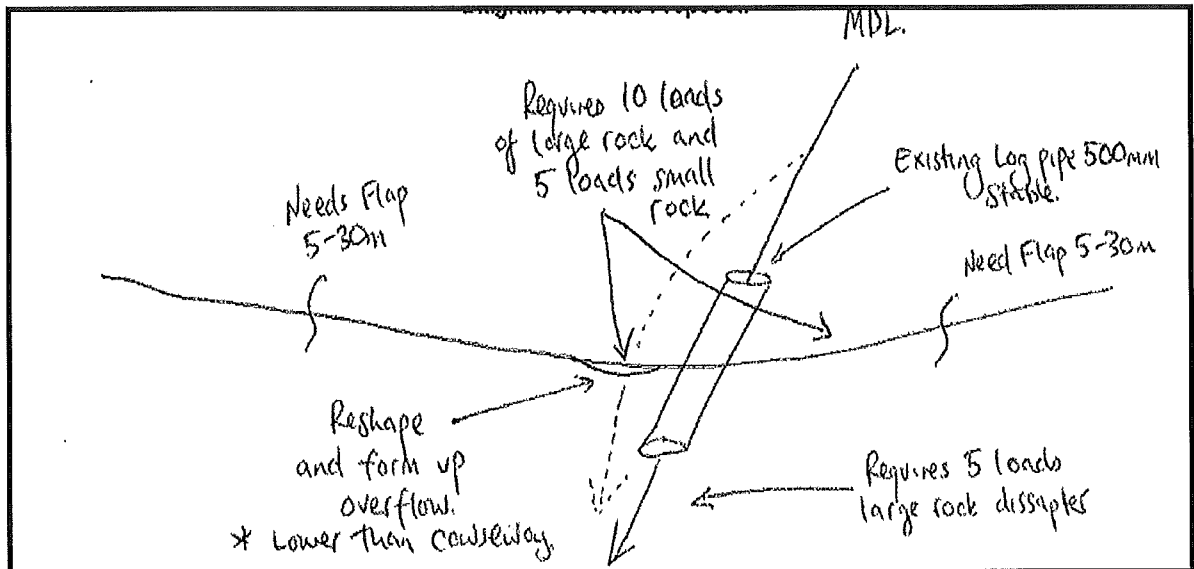 MDL.
Requires 10 loads
of large rock and
5 loads small
rock
Existing Log pipe 500mm
Stable.
Needs Flap
5-30m
Need Flap 5-30m
Reshape
and form up
overflow.
* Lower than causeway.
Requires 5 loads
large rock dissapter